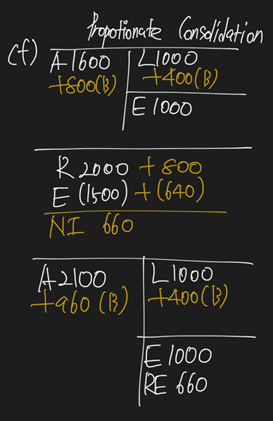 Propotionate Consolidation
(f) A 1600 L 1000
+800(B) +400(B)
E 1000
R 2000 + 800
E (1500) + (640)
NI 660
A 2100 L 1000
+960 (B) +400(B)
E 1000
RE 660